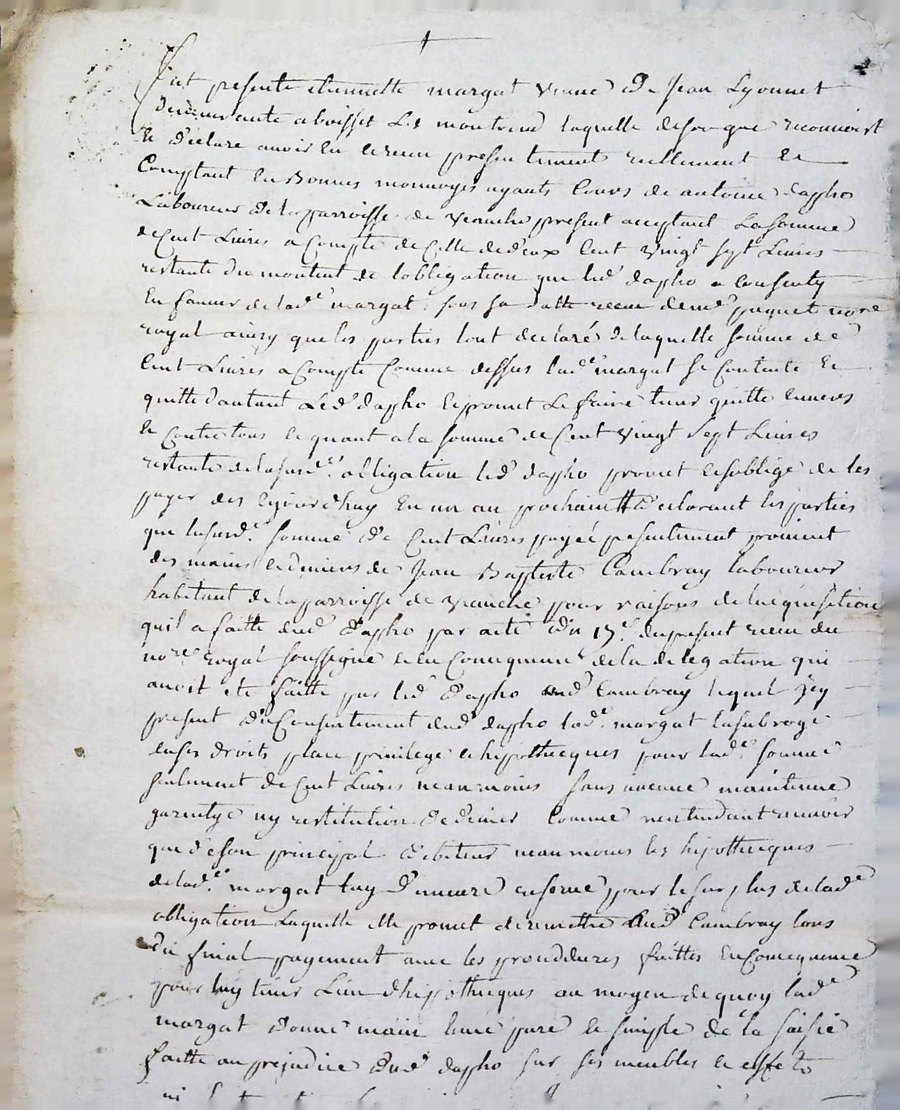 fut presente etiennette margat veuve de Jean Lyonnet
demeurante a boisset Les montrond laquelle de son gré reconnoist
et declare avoir eu et receu presentement reellement et
Comptant en Bonnes monnoyes ayants Cours de antoine dapho
Laboureur de la parroisse de veauche present acceptant La somme
de Cent Livres a Compte de Celle de deux Cent vingt sept Livres
restante du montent de lobligation que led. dapho a Consenty
En faveur de lad.e margat, sous sa datte receu de me. paquet no.re
royal ainsy que les parties lont declaré de laquelle somme de
Cent Livres a Compte Comme dessus lad.e margat se Contente et
quitte dautant Led. dapho et promet Le faire tenir quitte envers
et Contre tous et quant a la somme de Cent vingt sept Livres
restante de la susd.e obligation led. dapho promet et soblige de les
payer des cejourdhuy En un an prochain declarant les parties
que la susd.e somme de Cent Livres payée presentement provient
des mains et deniers de Jean Baptiste Cambray laboureur
habitant de la parroisse de veauche pour raisons de lacquisition
quil a faitte dud. dapho par acte du 17.e du present receu du
no.re royal soussigné et en Consequence de la delegation qui
avoit eté faitte par led. dapho aud. Cambray lequel icy
present du Consentement dud. dapho lad.e margat la subrogé
en ses droits place privilege et hypothecques pour lad.e somme
seulement de Cent Livres neanmoins sans aucune maintenue
garentye ny restitution de deniers Comme nentendant recevoir
que de son principal debiteur neanmoins les hipothecques
de lad.e margat luy demeure reservé pour le surplus de lad.e
obligation Laquelle elle promet de remettre aud. Cambray lors
du final payement avec les proceddures faittes En Consequence
pour luy tenir Lieu dhipothecques au moyen de quoy lad.e
margat donne main levée pure et simple de la saisie
faitte au prejudice dud. dapho sur ses meubles et effets